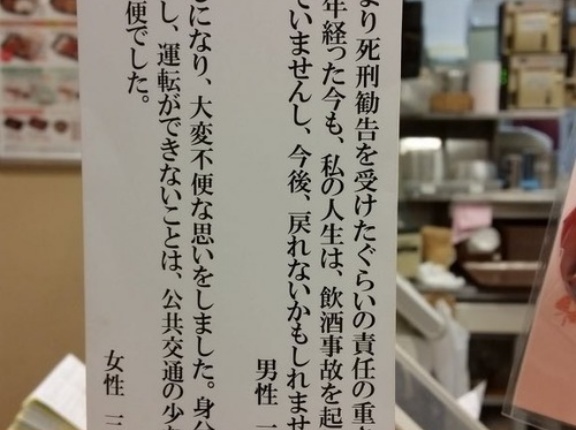 より死刑勧告を受けたぐらいの責任の重
年経った今も、私の人生は、飲酒事故を起
ていませんし、今後、戻れないかもしれませ
男性 一
じになり、大変不便な思いをしました。身分
し、運転ができないことは、公共交通の少
便でした。
女性 三